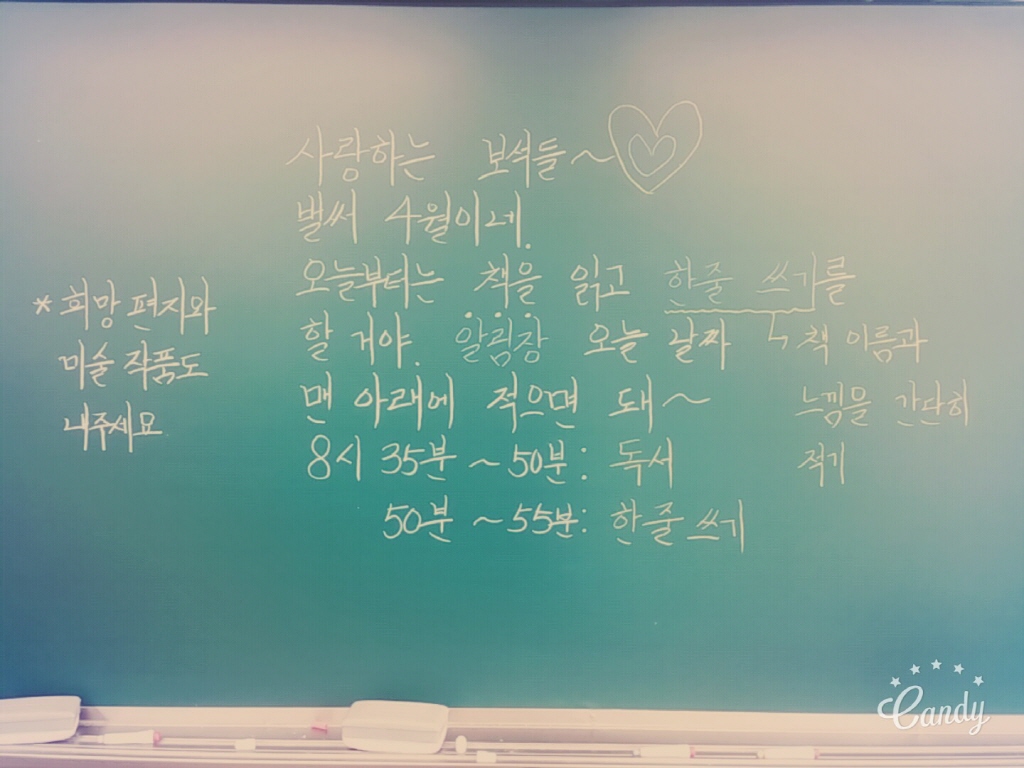 사랑하는 보석들~
벌써 4월이네.
오늘부터는 책을 읽고 한줄 쓰기를
할 거야. 알림장 오늘 날짜
맨 아래에 적으면 돼~
8시 35분 ~50분: 독서
50분 ~55분: 한줄쓰기
↳책 이름과
느낌을 간단히
적기
*희망편지와
미술 작품도
내주세요
Candy